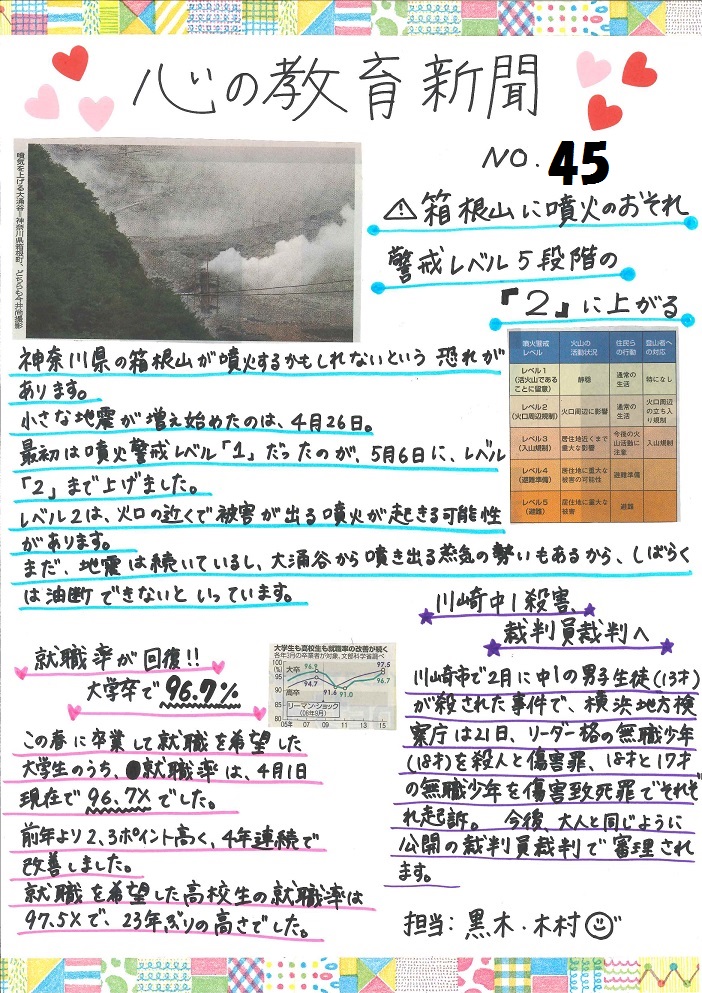 心の教育新聞
NO. 45
⚠箱根山に噴火のおそれ
警戒レベル5段階の
『2』に上がる
噴気を上げる大涌谷＝神奈川県箱根町、どちらも今井尚撮影
神奈川県の箱根山が噴火するかもしれないという恐れが
あります。
小さな地震が増え始めたのは、4月26日。
最初は噴火警戒レベル「1」だったのが、5月6日に、レベル
「2」まで上げました。
レベル2は、火口の近くで被害が出る噴火が起きる可能性
があります。
まだ、地震は続いているし、大涌谷から噴き出る蒸気の勢いもあるから、しばらく
は油断できないといっています。
噴火警戒レベル 火山の活動状況 住民らの行動 登山者への対応
レベル1（活火山であることに留意） 静穏 通常の生活 特になし
レベル2（火口周辺規制） 火口周辺に影響 通常の生活 火口周辺の立ち入り規制
レベル3（入山規制） 居住地近くまで重大な影響 今後の火山活動に注意 入山規制
レベル4（避難準備） 居住地に重大な被害の可能性 避難準備
レベル5（避難） 居住地に重大な被害 避難
就職率が回復!!
大学卒で96.7%
大学生も高校生も就職率の改善が続く
各年3月の卒業者が対象、文部科学省調べ
(%)
100
95
90
85
80
大卒
96.9
94.7
高卒
91.6
91.0
97.5
96.7
リーマン・ショック
(08年9月)
05年 07 09 11 13 15
この春に卒業して就職を希望した
大学生のうち、就職率は、4月1日
現在で96.7%でした。
前年より2.3ポイント高く、4年連続で
改善しました。
就職を希望した高校生の就職率は
97.5%で、23年ぶりの高さでした。
川崎中1殺害、
裁判員裁判へ
川崎市で2月に中1の男子生徒(13才)
が殺された事件で、横浜地方検
察庁は21日、リーダー格の無職少年
(18才)を殺人と傷害罪、18才と17才
の無職少年を傷害致死罪でそれぞ
れ起訴。今後、大人と同じように
公開の裁判員裁判で審理され
ます。
担当：黒木・木村